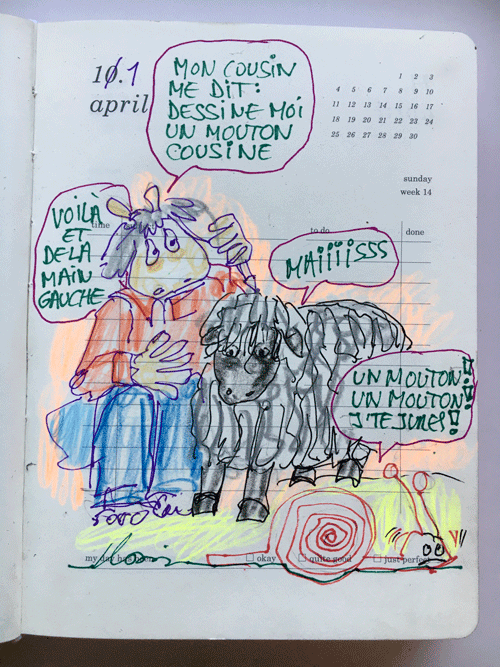 10.1
april
1 2 3
4 5 6 7 8 9 10
11 12 13 14 15 16 17
18 19 20 21 22 23 24
25 26 27 28 29 30
sunday
week 14
MON COUSIN
ME DIT:
DESSINE MOI
UN MOUTON
COUSINE
time
to do
done
VOILÀ
ET
DE LA
MAIN
GAUCHE
MAIIIISSS
UN MOUTON!
UN MOUTON!
J'TE JURES!
my day has been
okay
quite good
just perfect